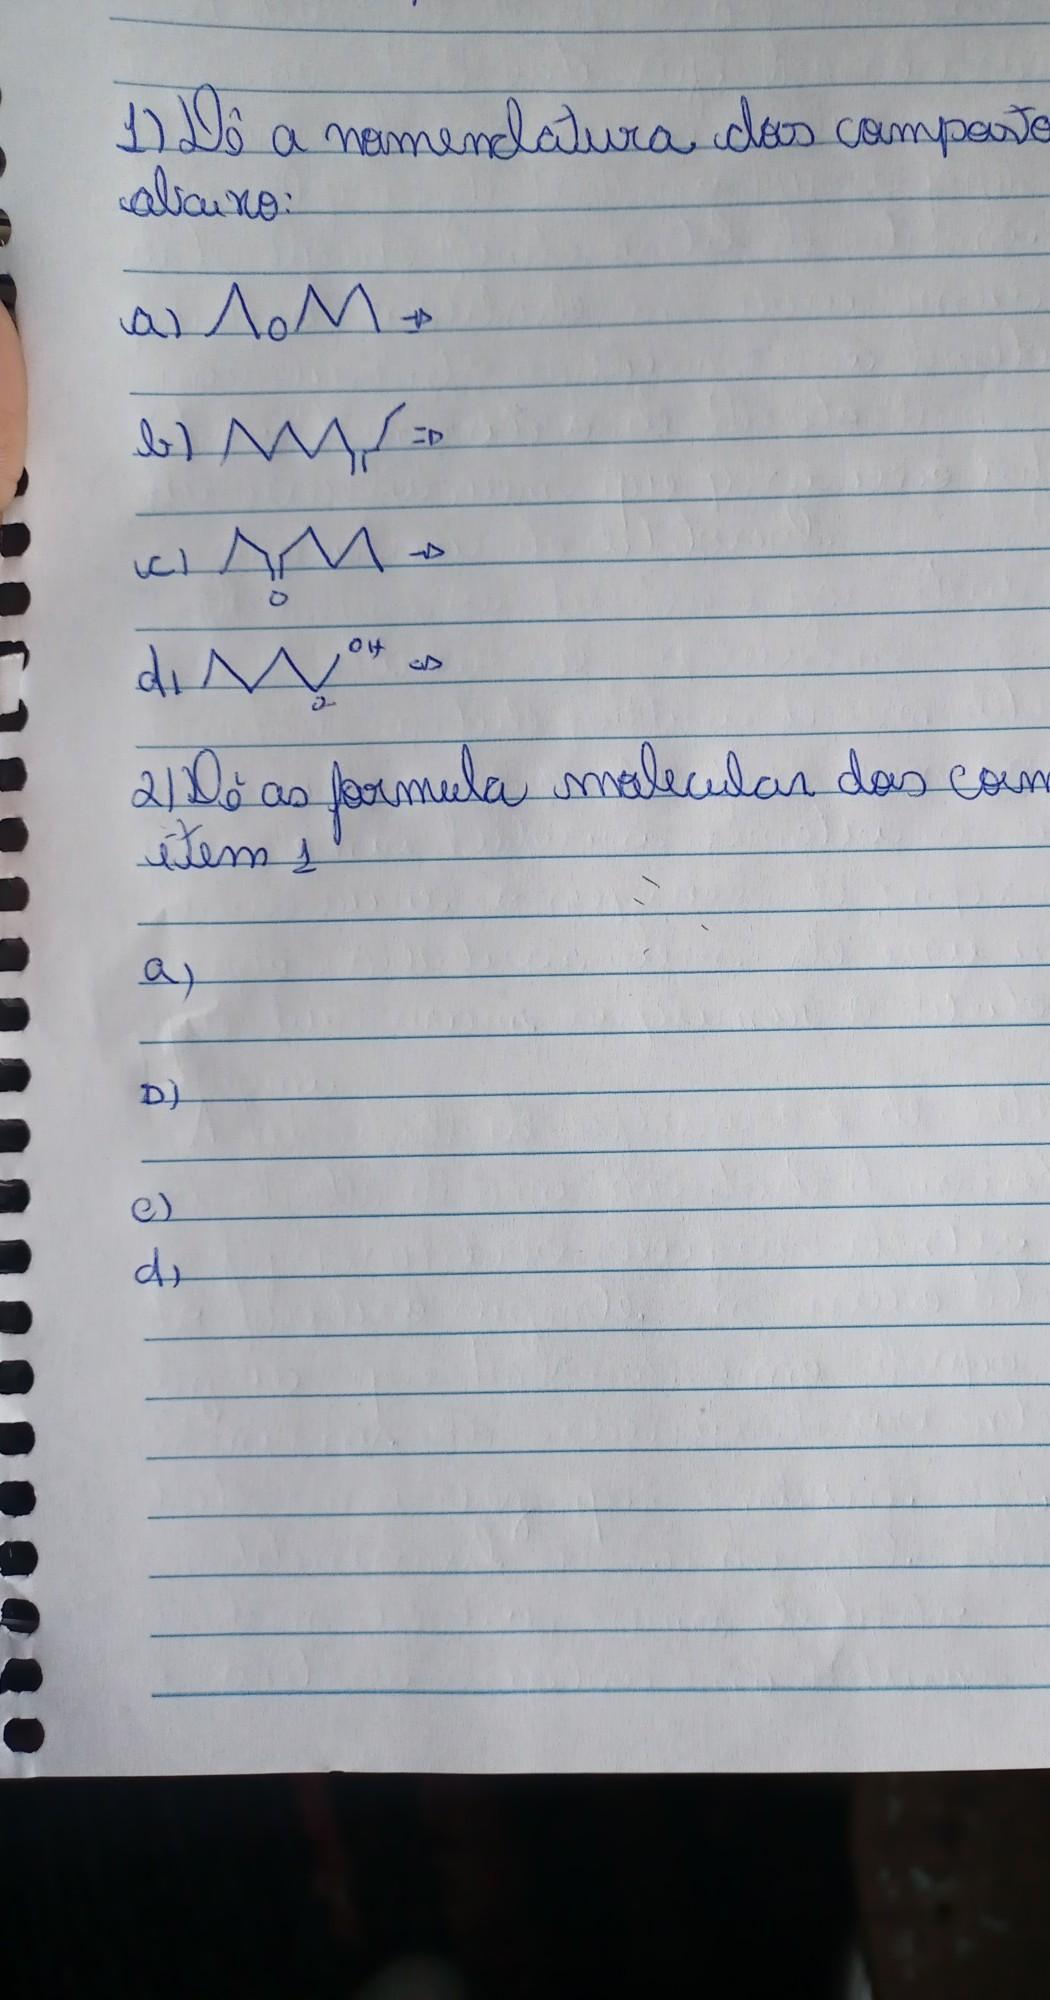 1) Dê a nomenclatura dos composto
abaixo:
a) O
b)
c)
O
d)
OH
2) Dê as formula molecular dos com
item 1
a)
D)
c)
d)